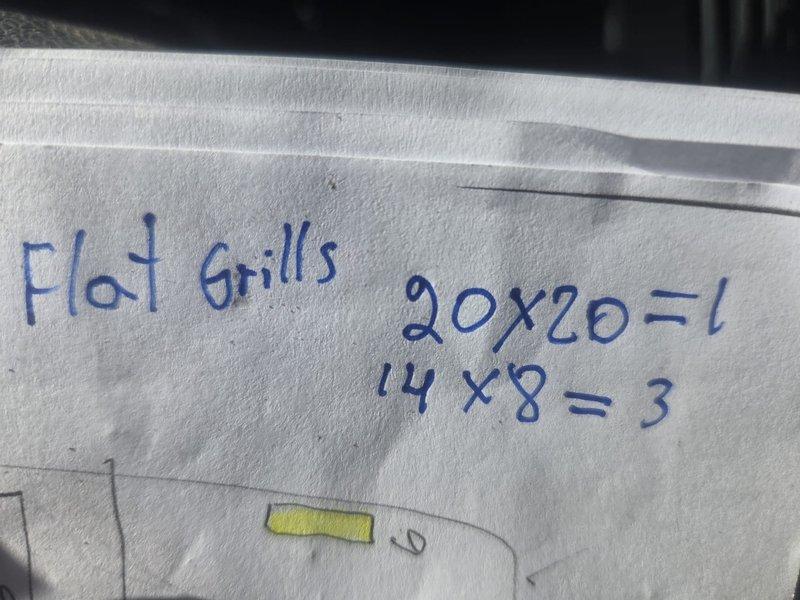 Flat Grills
20x20=1
14x8=3
6